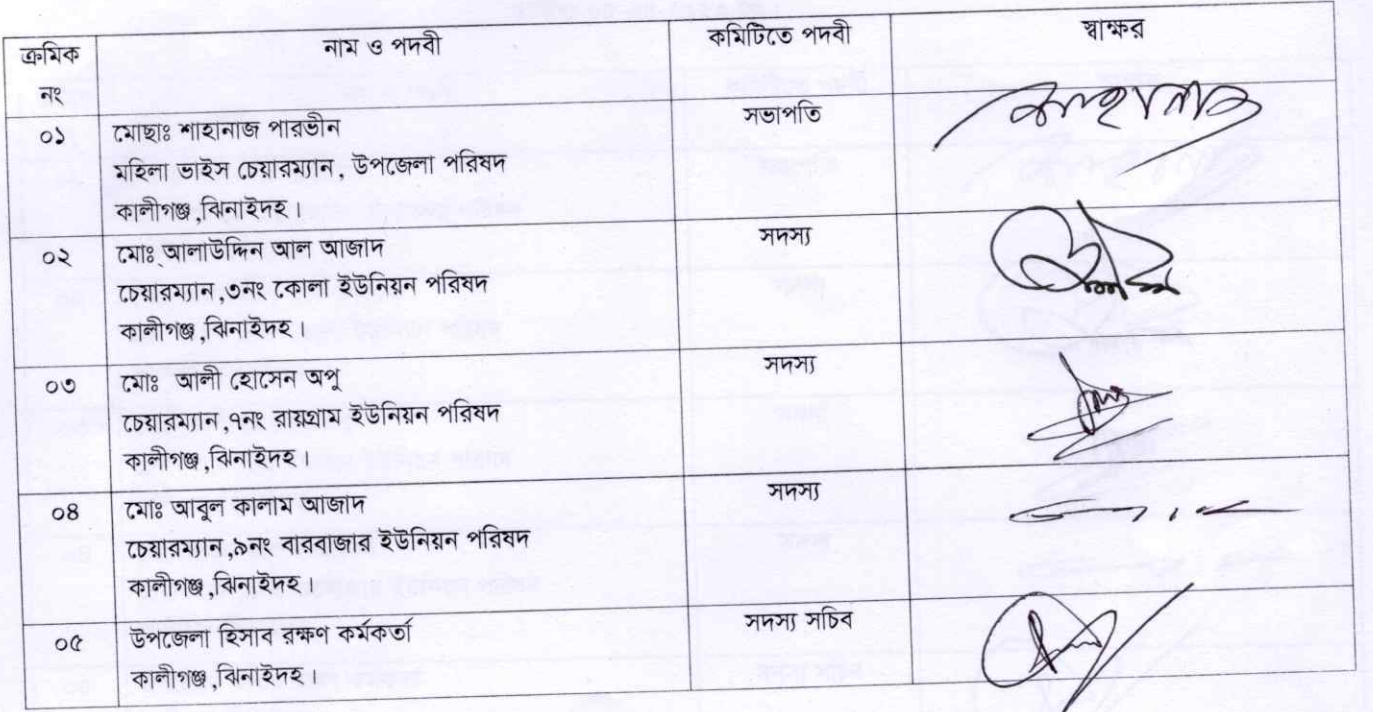 ক্রমিক নং নাম ও পদবী কমিটিতে পদবী স্বাক্ষর
০১ মোছাঃ শাহানাজ পারভীন সভাপতি শাহানাজ
মহিলা ভাইস চেয়ারম্যান, উপজেলা পরিষদ
কালীগঞ্জ,ঝিনাইদহ।
০২ মোঃ আলাউদ্দিন আল আজাদ সদস্য
চেয়ারম্যান,৩নং কোলা ইউনিয়ন পরিষদ
কালীগঞ্জ,ঝিনাইদহ।
০৩ মোঃ আলী হোসেন অপু সদস্য
চেয়ারম্যান,৭নং রায়গ্রাম ইউনিয়ন পরিষদ
কালীগঞ্জ,ঝিনাইদহ।
০৪ মোঃ আবুল কালাম আজাদ সদস্য
চেয়ারম্যান,৯নং বারবাজার ইউনিয়ন পরিষদ
কালীগঞ্জ,ঝিনাইদহ।
০৫ উপজেলা হিসাব রক্ষণ কর্মকর্তা সদস্য সচিব
কালীগঞ্জ,ঝিনাইদহ।